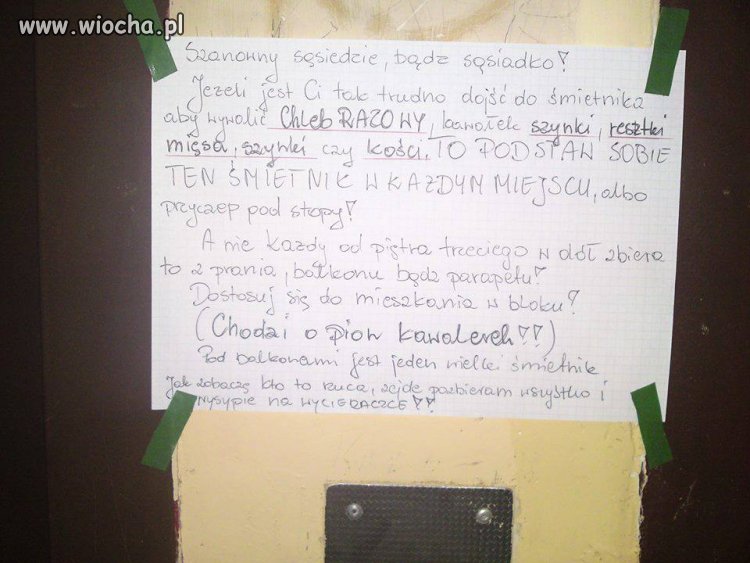 www.wiocha.pl
Szanowny sąsiedzie, bądz sąsiadko!
Jeżeli jest Ci tak trudno dojść do śmietnika
aby wywalić Chleb RAZOWY, kawałek szynki, resztki
mięsa, szynki czy kości, TO PODSTAW SOBIE
TEN ŚMIETNIK W KAŻDYM MIEJSCU, albo
przyczep pod stopy!
A nie każdy od piętra trzeciego w dół zbiera
to z prania, balkonu bądz parapetu!
Dostosuj się do mieszkania w bloku!
(Chodzi o pion kawalerek!!)
Pod balkonami jest jeden wielki śmietnik
Jak zobaczę kto to rzuca, zejdę pozbieram wszystko i
wysypie na WYCIERACZCE!!